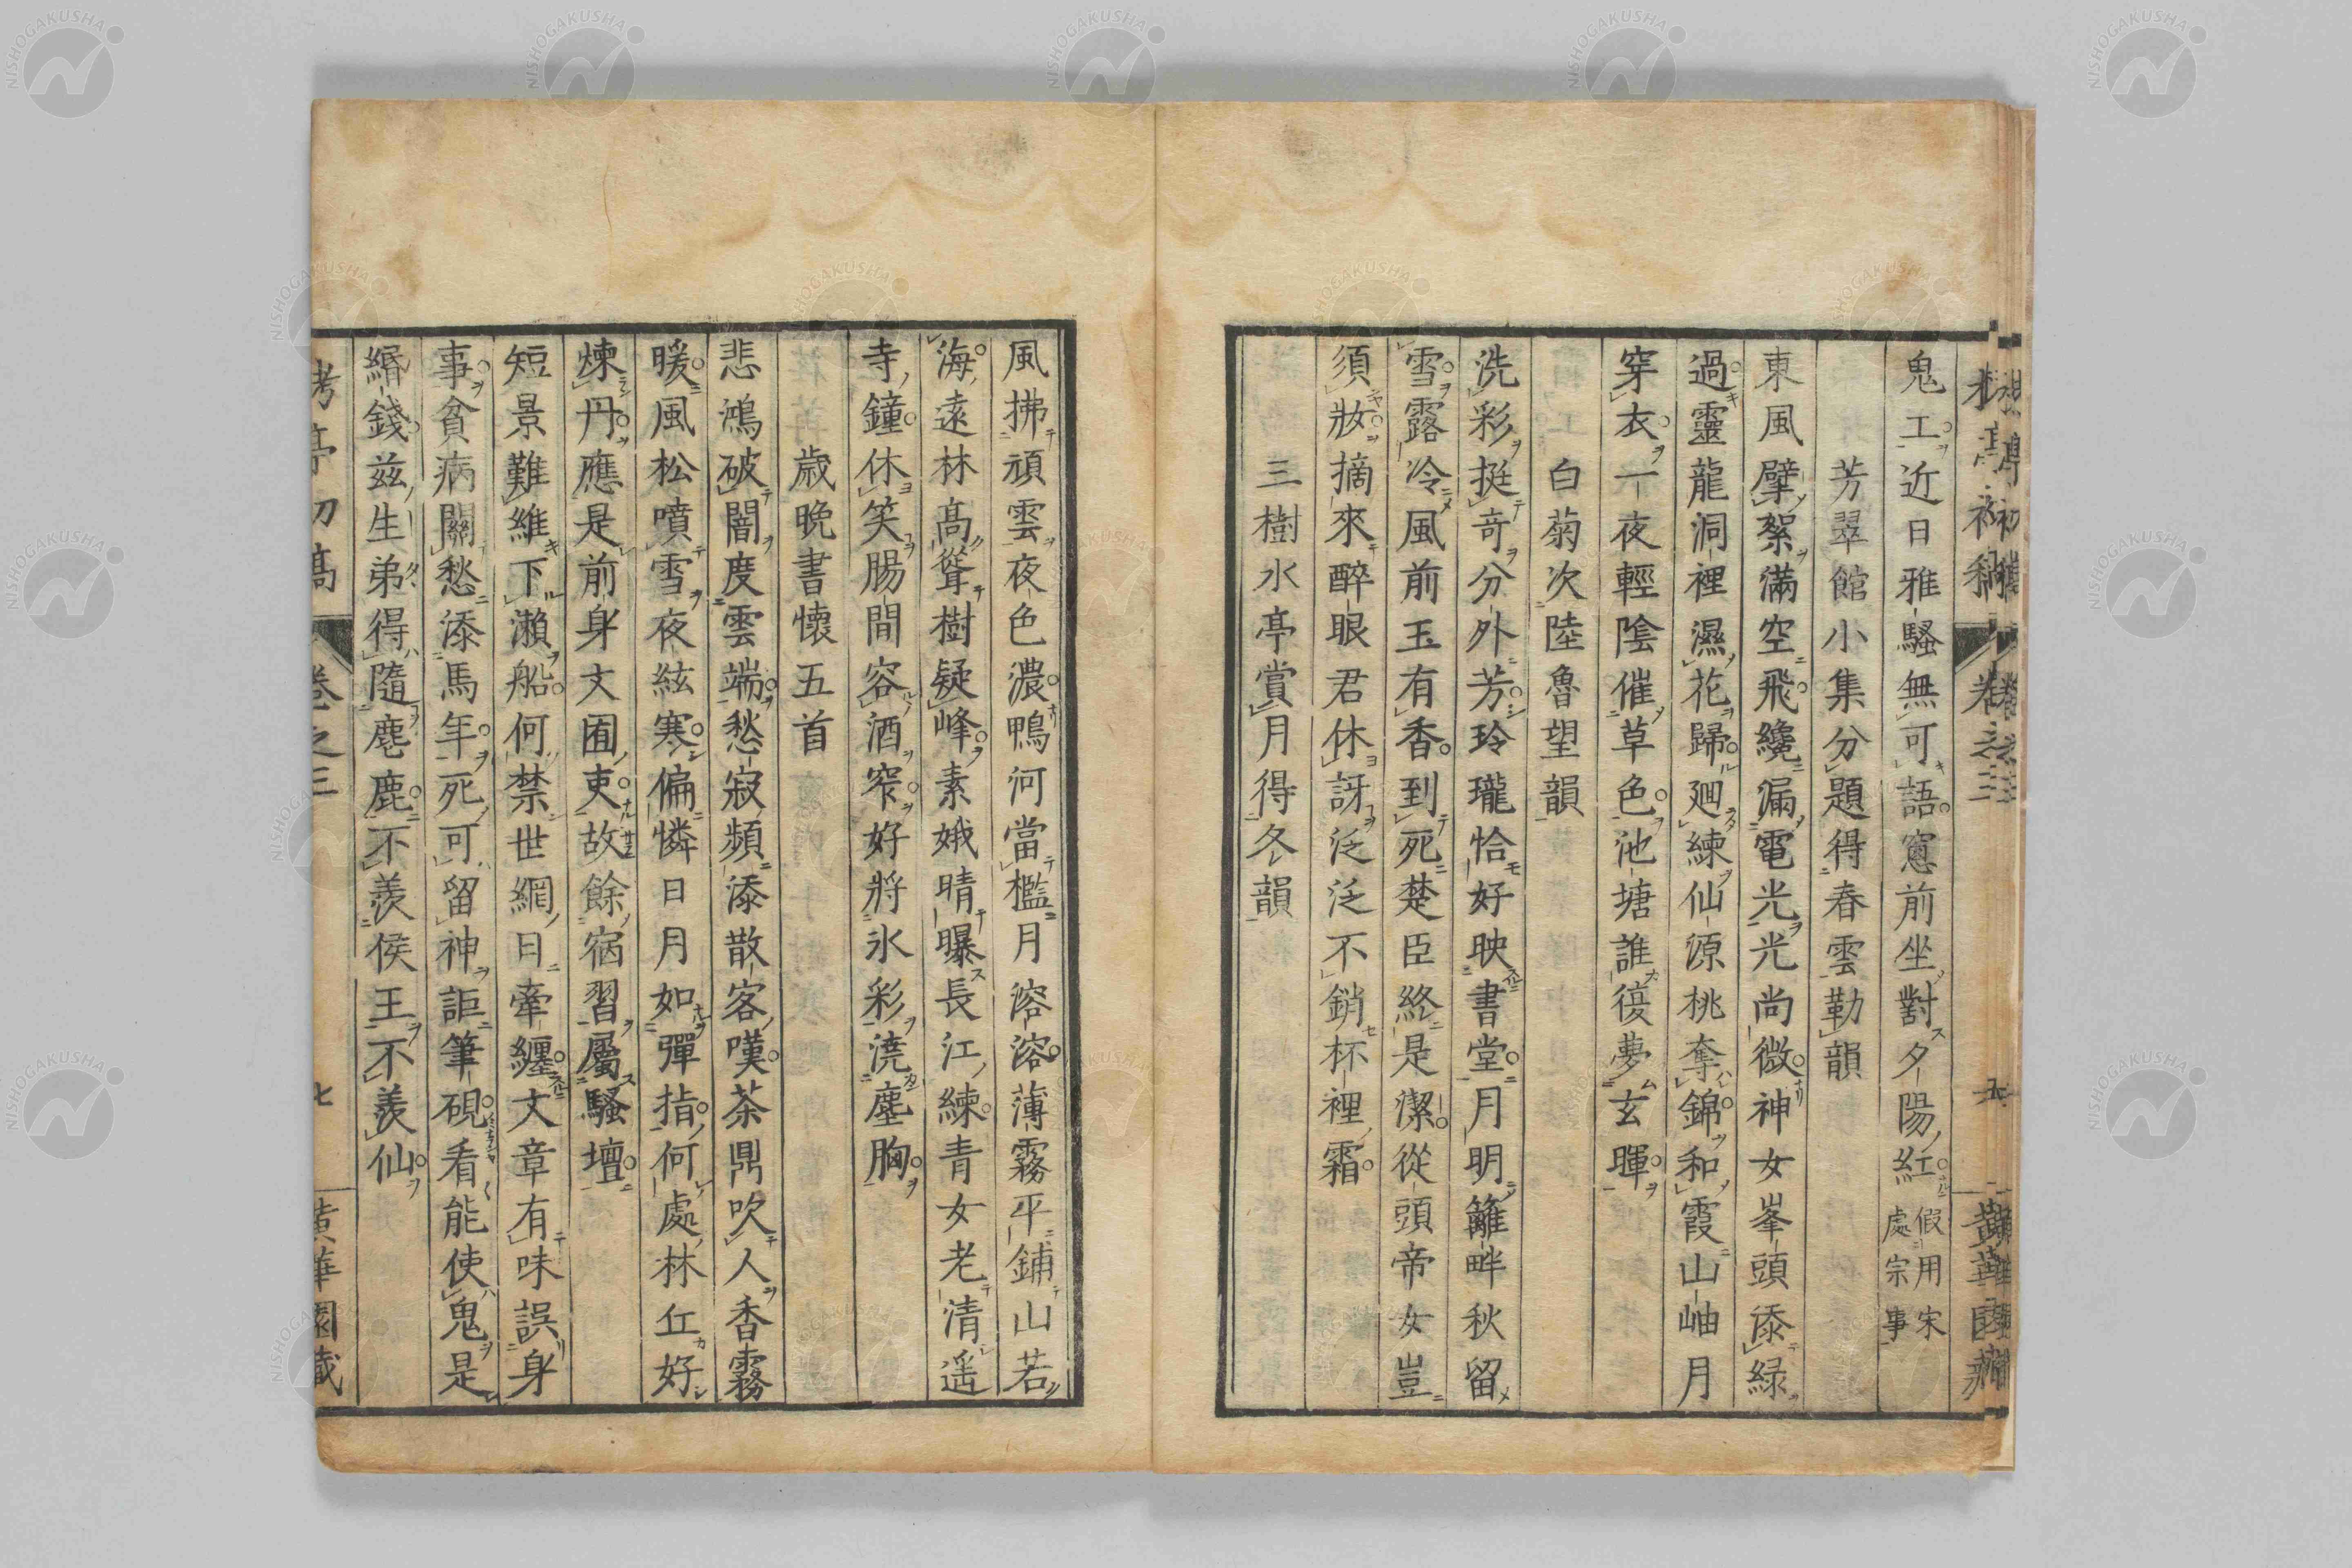 鬼工近日雅騷無可語窻前坐對夕陽紅 假用宋處宗事
芳翠館小集分題得春雲勒韻
東風擘絮滿空飛纔漏電光光尚微神女峯頭添緑
過靈龍洞裡濕花歸廻練仙源桃奪錦和霞山岫月
穿衣一夜輕陰催草色池塘誰復夢玄暉
白菊次陸魯望韻
洗彩挺奇分外芳玲瓏恰好映書堂月明籬畔秋留
雪露冷風前玉有香到死楚臣終是潔從頭帝女豈
須妝摘來醉眼君休訝泛泛不銷杯裡霜
三樹水亭賞月得冬韻
風拂頑雲夜色濃鴨河當檻月溶溶薄霧平鋪山若
海遠林高聳樹疑峰素娥晴曝長江練青女老清遥
寺鐘休笑腸間容酒窄好將氷彩澆塵胸
歳晚書懷五首
悲鴻破闇度雲端愁寂頻添散客嘆茶鼎吹人香霧
暖風松噴雪夜絃寒偏憐日月如彈指何處林丘好
煉丹應是前身文囿吏故餘宿習屬騷壇
短景難維下瀬船何禁世網日牽纏文章有味誤身
事貧病關愁添馬年死可留神詎筆硯看能使鬼是
緡錢兹生弟得隨麀鹿不羨侯王不羨仙
卷之三
七
NISHOGAKUSHA